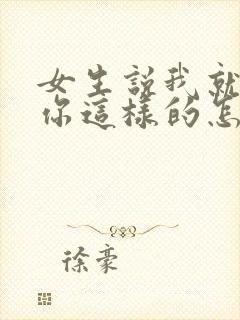 女生説我就
你這樣的怎
徐豪